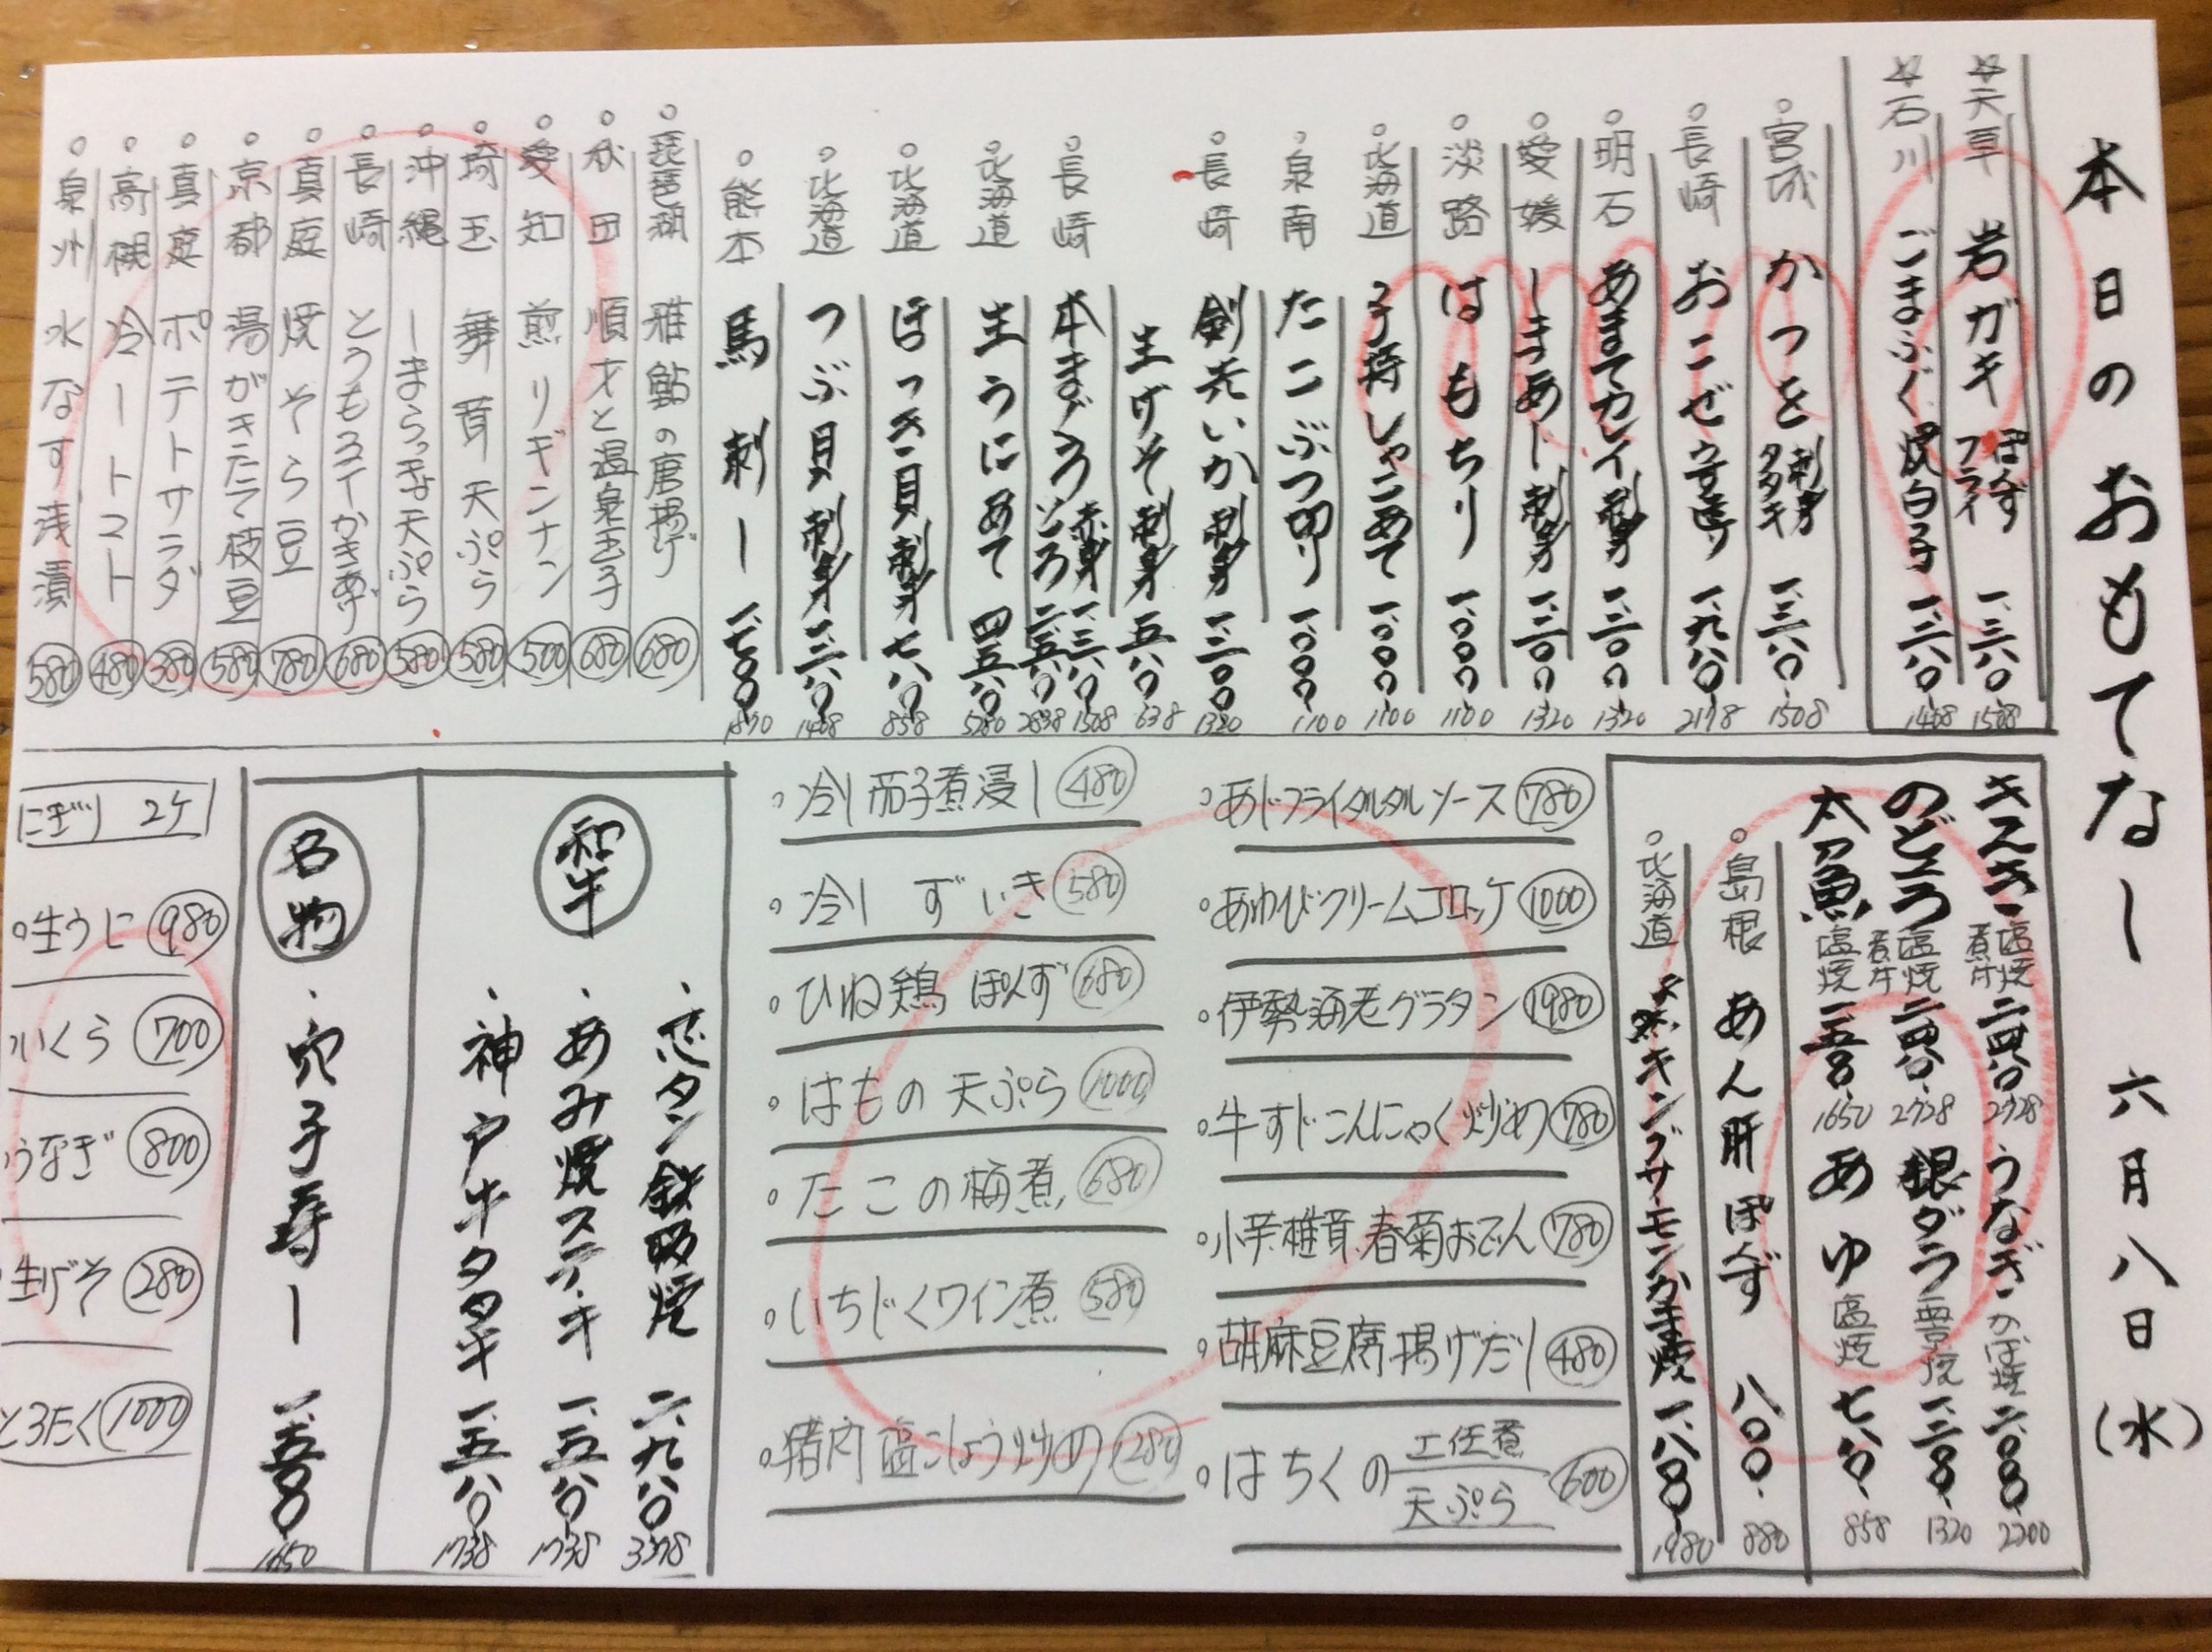 本日のおもてなし 六月八日(水)
☆天草 岩ガキ ぽんず フライ 一、三八〇 1508
☆石川 ごまふぐ 焼白子 一、二八〇 1408
宮城 かつを 刺身 タタキ 一、三八〇 1508
長崎 おこぜ うす造り 一、九八〇 2178
明石 あまてカレイ 刺身 一、二〇〇 1320
愛媛 しまあじ 刺身 一、二〇〇 1320
淡路 はもちり 一、〇〇〇 1100
北海道 子持しゃこあて 一、〇〇〇 1100
泉南 たこぶつ切り 一、〇〇〇 1100
長崎 剣先いか 刺身 一、二〇〇 1320
生げそ 刺身 五八〇 638
長崎 本まぐろ 赤身 一、三八〇 1508
とろ 二、五八〇 2838
北海道 生うにあて 四、八〇〇 5280
北海道 ほっき貝 刺身 七八〇 858
北海道 つぶ貝 刺身 一、二八〇 1408
熊本 馬刺し 一、七〇〇 1870
琵琶湖 稚鮎の唐揚げ 680
秋田 順才と温泉玉子 680
愛知 煎りギンナン 500
埼玉 舞茸天ぷら 580
沖縄 しまらっきょ天ぷら 580
長崎 とうもろこしかきあげ 680
真庭 焼そら豆 780
京都 湯がきたて枝豆 580
真庭 ポテトサラダ 380
高槻 冷しトマト 480
泉州 水なす浅漬 580
きんき 塩焼 煮付 二、四八〇 2728
のどぐろ 塩焼 煮付 二、四八〇 2728
太刀魚 塩焼 一、五〇〇 1650
うなぎ かば焼 二、〇〇〇 2200
銀ダラ 西京焼 一、二〇〇 1320
あゆ 塩焼 七八〇 858
島根 あん肝ぽんず 八〇〇 880
北海道 キングサーモンかま焼 一、八〇〇 1980
あじフライタルタルソース 780
あわびクリームコロッケ 1000
伊勢海老グラタン 1980
牛すじこんにゃく炒め 780
小芋椎茸春菊おでん 780
胡麻豆腐揚げだし 480
はちくの 土佐煮 天ぷら 600
冷し茄子煮浸し 480
冷しずいき 580
ひね鶏ぽんず 680
はもの天ぷら 1000
たこの梅煮 680
いちじくワイン煮 580
猪肉塩こしょう炒め 1280
和牛
芯タン鉄砲焼 二、九八〇 3278
あみ焼ステーキ 一、五八〇 1738
神戸牛タタキ 一、五八〇 1738
名物
穴子寿し 一、五〇〇 1650
にぎり 2ケ
生うに 980
いくら 700
うなぎ 800
生げそ 280
とろたく 1000